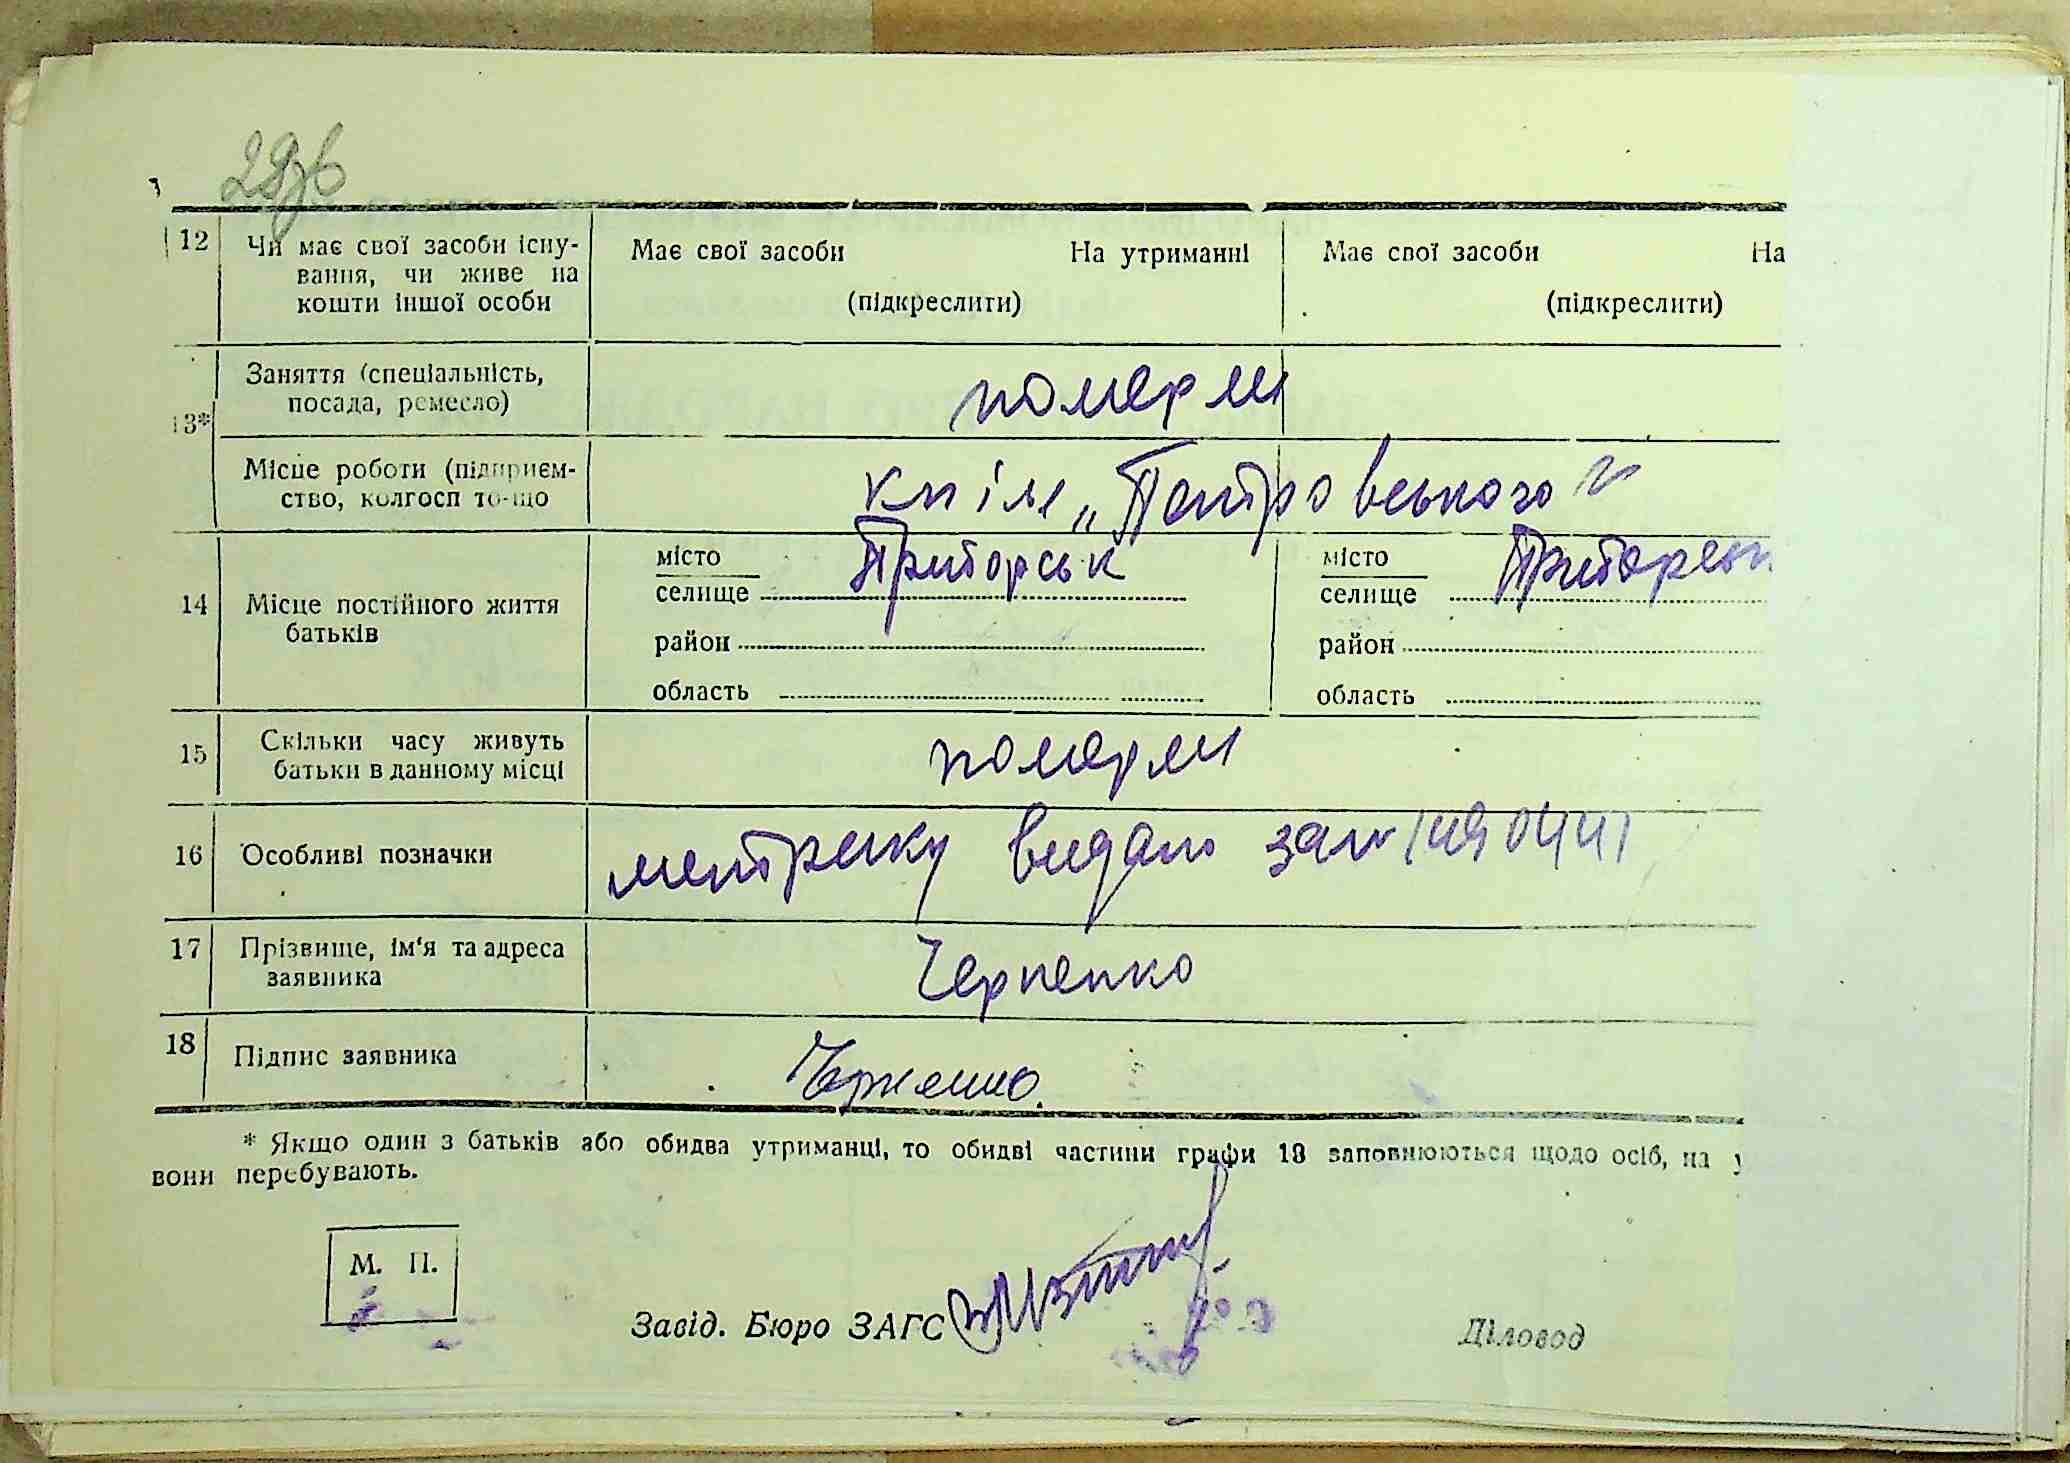 28зв
12 Чи має свої засоби існу-
вання, чи живе на
кошти іншої особи
Має свої засоби На утриманні
(підкреслити)
Має свої засоби На
(підкреслити)
13* Заняття (спеціальність,
посада, ремесло)
померли
Місце роботи (підприєм-
ство, колгосп то-що
к-п ім „Петровського"
14 Місце постійного життя
батьків
місто Приморськ
селище
район
область
місто
селище
район
область
15 Скільки часу живуть
батьки в данному місці
померли
16 Особливі позначки
метрику видано
17 Прізвище, ім'я та адреса
заявника
Черненко
18 Підпис заявника
Черненко.
* Якщо один з батьків або обидва утриманці, то обидві частини графи 13 заповнюються щодо осіб, на у
вони перебувають.
М. П.
Завід. Бюро ЗАГС
Діловод